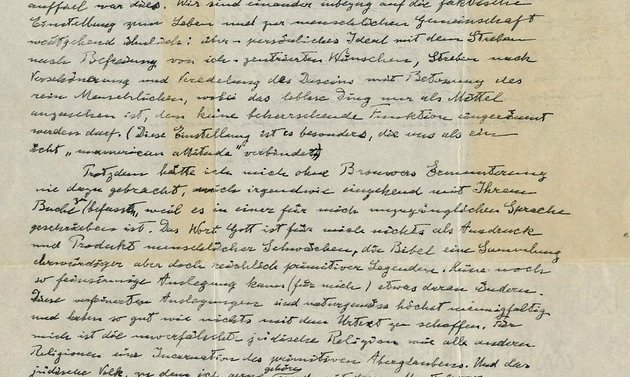 auffiel war dies. Wir sind einander inbezug auf die faktische
Einstellung zum Leben und zur menschlichen Gemeinschaft
weitgehend ähnlich: über-persönliches Ideal mit dem Streben
nach Befreiung von ich-zentrierten Wünschen, Streben nach
Verschönerung und Veredelung des Daseins mit Betonung des
rein Menschlichen, wobei das leblose Ding nur als Mittel
anzusehen ist, dem keine beherrschende Funktion eingeräumt
werden darf. (Diese Einstellung ist es besonders, die uns als ein
echt „unamerican attitude" verbindet)
Trotzdem hätte ich mich ohne Brouwers Ermunterung
nie dazu gebracht, mich irgendwie eingehend mit Ihrem
Buche zu befassen, weil es in einer für mich unzugänglichen Sprache
geschrieben ist. Das Wort Gott ist für mich nichts als Ausdruck
und Produkt menschlicher Schwächen, die Bibel eine Sammlung
ehrwürdiger aber doch reichlich primitiver Legenden. Keine noch
so feinsinnige Auslegung kann (für mich) etwas daran ändern.
Diese verfeinerten Auslegungen sind naturgemäss höchst mannigfaltig
und haben so gut wie nichts mit dem Urtext zu schaffen. Für
mich ist die unverfälschte jüdische Religion wie alle anderen
Religionen eine Incarnation des primitiven Aberglaubens. Und das
jüdische Volk, zu dem ich gern gehöre